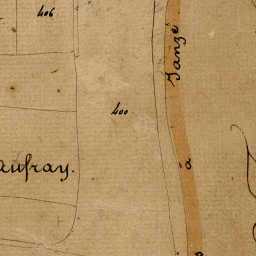 406
Janzé
400
aufray.
8